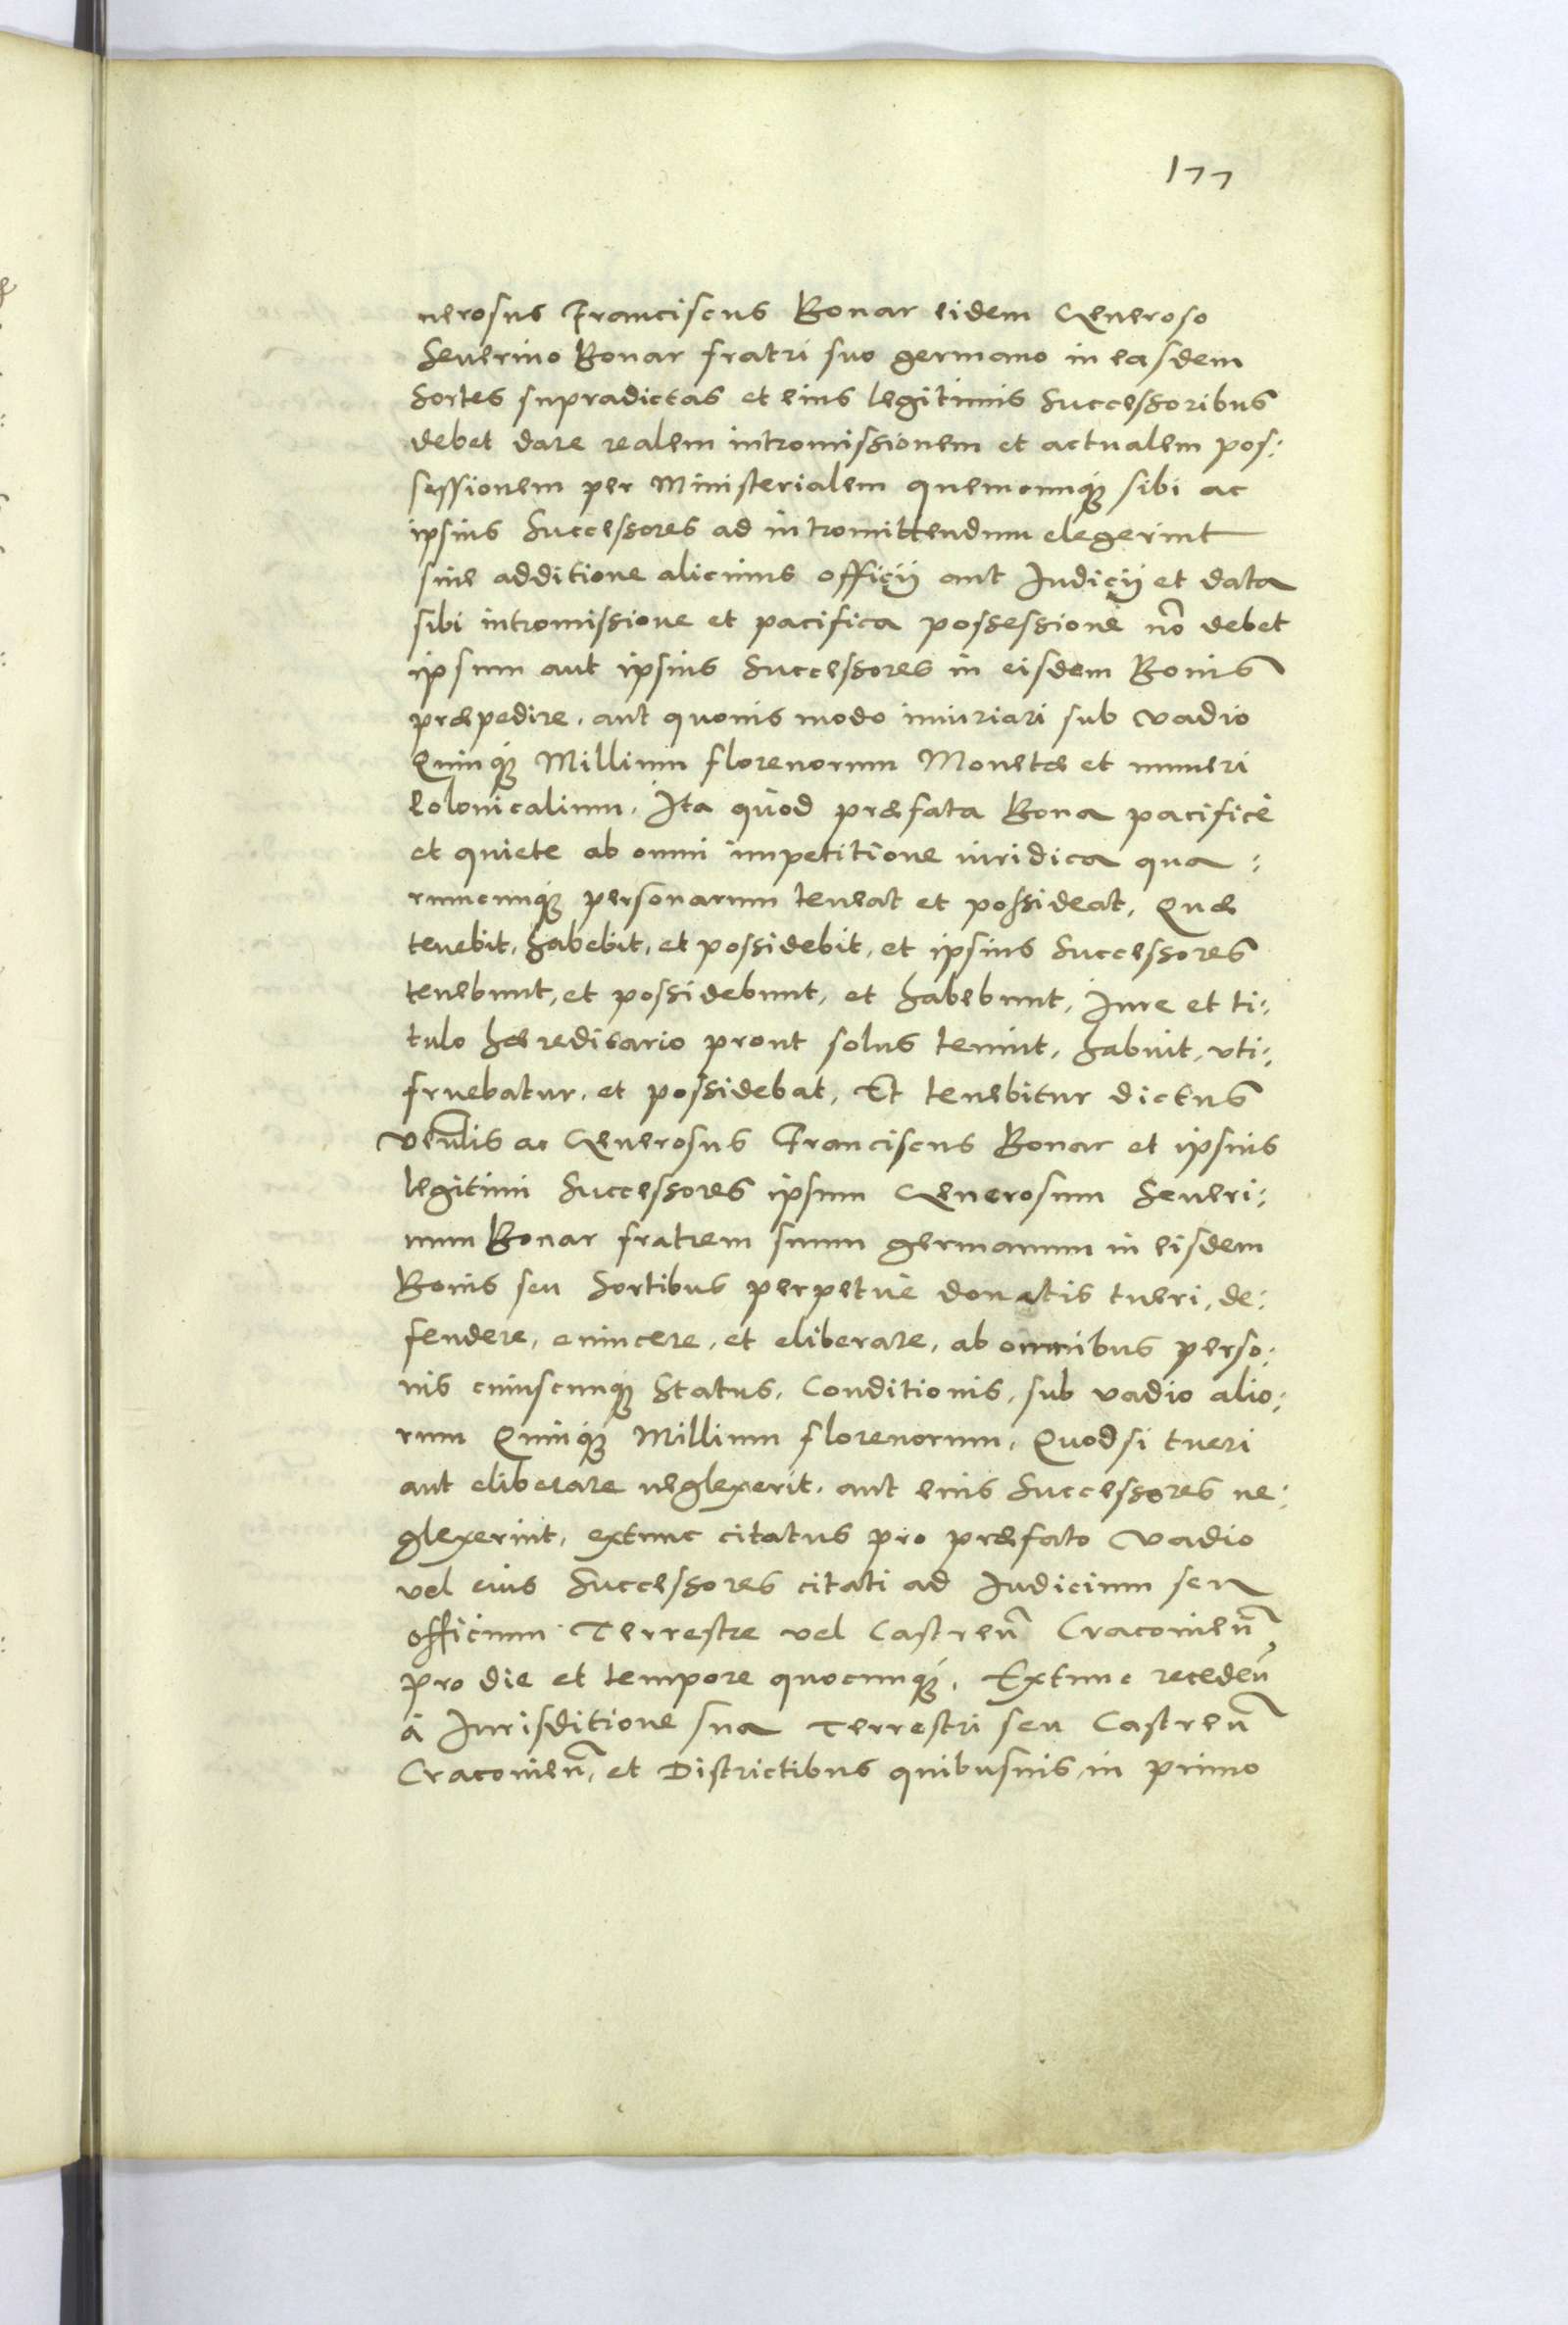 177
nerosus Franciscus Bonar eidem Generoso
Seuerino Bonar fratri suo germano in easdem
Sortes supradictas et eius legitimis Successoribus
debet dare realem intromissionem et actualem pos:
sessionem per Ministerialem quemcunq3 sibi ac
ipsius Successores ad intromittendum elegerint
sine additione alicuius officij aut Iudicij et data
sibi intromissione et pacifica possessione nõ debet
ipsum aut ipsius Successores in eisdem Bonis
præpedire, aut quouis modo iniuriari sub vadio
Quinq3 Millium florenorum Monetæ et numeri
Polonicalium. Ita quod præfata Bona pacificè
et quiete ab omni impetitione iuridica qua:
rumcunq3 personarum teneat et possideat, Quæ
tenebit, habebit, et possidebit, et ipsius Successores
tenebunt, et possidebunt, et habebunt, Iure et ti:
tulo hæreditario prout solus tenuit, habuit, vti:
fruebatur, et possidebat, Et tenebitur dictus
Venlis ac Generosus Franciscus Bonar et ipsius
legitimi Successores ipsum Generosum Seueri:
num Bonar fratrem suum germanum in eisdem
Bonis seu Sortibus perpetuè donatis tueri, de:
fendere, euincere, et eliberare, ab omnibus perso:
nis cuiuscunq3 Status, Conditionis, sub vadio alio:
rum Quinq3 Millium florenorum, Quod si tueri
aut eliberare neglexerit, aut eius Successores ne:
glexerint, extunc citatus pro præfato Vadio
vel eius Successores citati ad Iudicium seu
officium Terrestre vel Castren̄ Cracouien̄
pro die et tempore quocunq3, Extunc receden̄
à Iurisditione sua Terrestri seu Castren̄
Cracouien̄, et Districtibus quibusuis, in primo